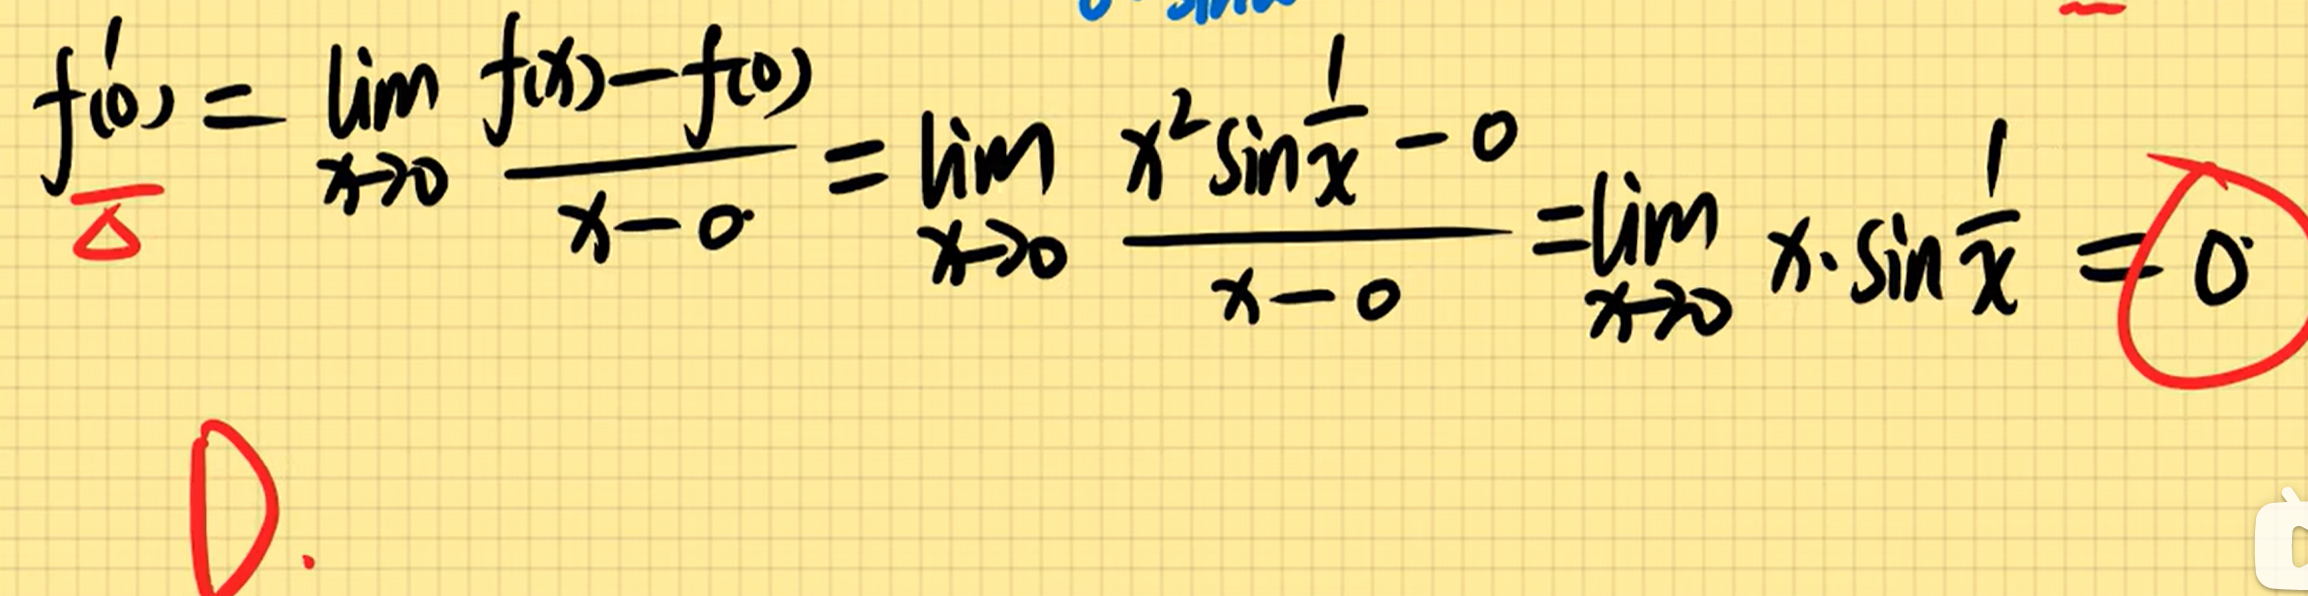 f'(0) = lim x→0 (f(x) − f(0))/(x − 0) = lim x→0 (x² sin 1/x − 0)/(x − 0) = lim x→0 x · sin 1/x = 0
D.